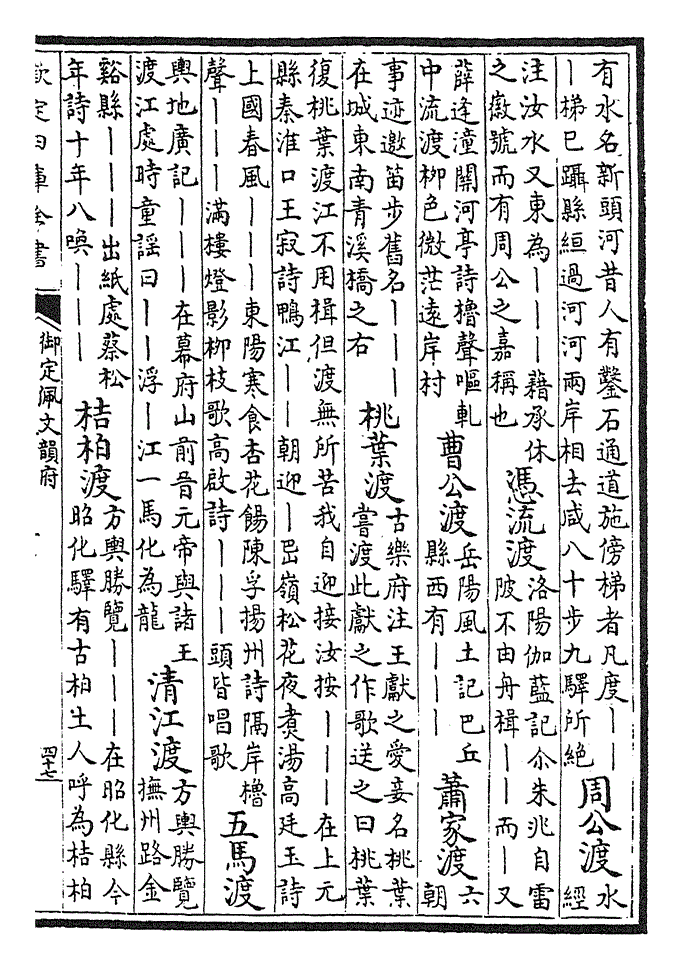 有水名新頭河昔人有鑿石通道施傍梯者凡度丨丨
丨梯已躡縣絙過河河兩岸相去咸八十步九驛所絕
周公渡
水
經
注汝水又東為丨丨丨藉承休
之徽號而有周公之嘉稱也
憑流渡
洛陽伽藍記尒朱兆自雷
陂不由舟楫丨丨而丨又
薛逢潼關河亭詩櫓聲嘔軋
中流渡柳色微茫遠岸村
曹公渡
岳陽風土記巴丘
縣西有丨丨丨
蕭家渡
六
朝
事迹邀笛步舊名丨丨丨
在城東南青溪橋之右
桃葉渡
古樂府注王獻之愛妾名桃葉
嘗渡此獻之作歌送之曰桃葉
復桃葉渡江不用楫但渡無所苦我自迎接汝按丨丨丨在上元
縣秦淮口王寂詩鴨江丨丨朝迎丨嵒嶺松花夜煑湯高廷玉詩
上國春風丨丨丨東陽寒食杏花餳陳孚揚州詩隔岸櫓
聲丨丨丨滿樓燈影柳枝歌高啟詩丨丨丨頭皆唱歌
五馬渡
輿地廣記丨丨丨在幕府山前晉元帝與諸王
渡江處時童謡曰丨丨浮丨江一馬化為龍
清江渡
方輿勝覽
撫州路金
谿縣丨丨丨出紙處蔡松
年詩十年八喚丨丨丨
桔柏渡
方輿勝覽丨丨丨在昭化縣今
昭化驛有古柏土人呼為桔柏
欽定四庫全書
御定佩文韻府
四十七